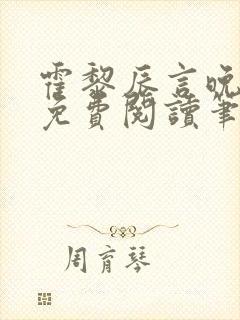 霍黎辰言晚
免費閱讀筆
周育琴